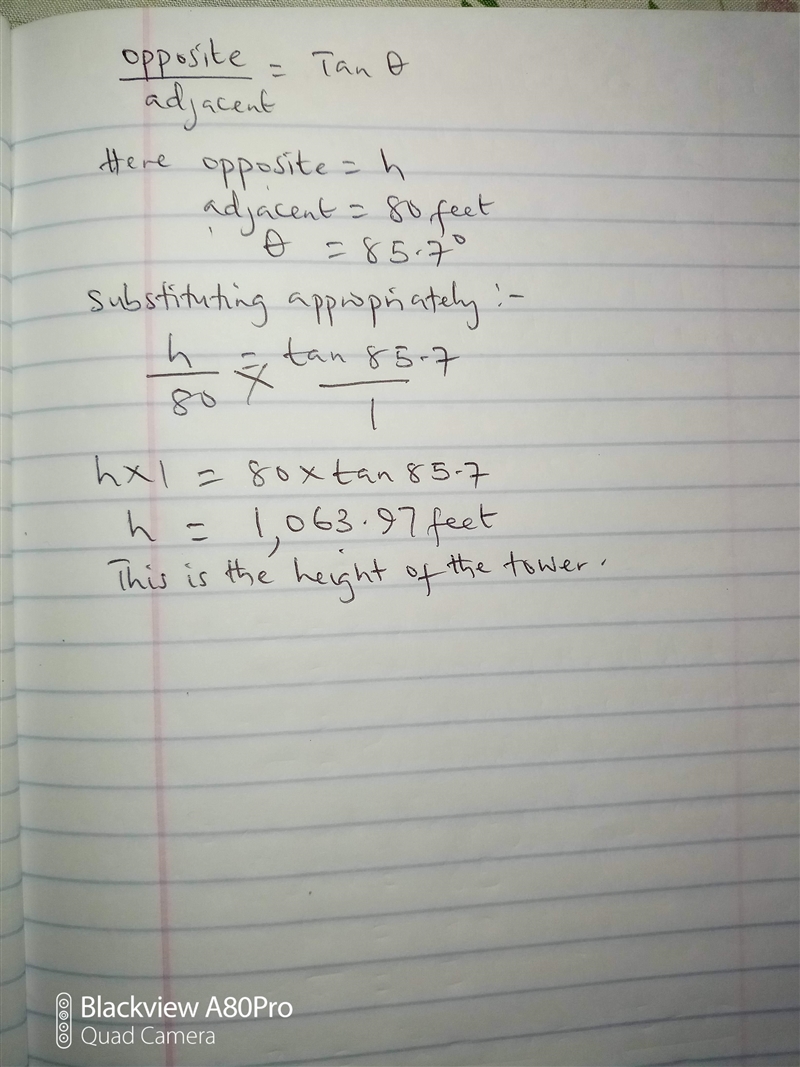 opposite = Tan θ
adjacent
Here opposite = h
adjacent = 80 feet
θ = 85.7°
Substituting appropriately :-
h = tan 85.7
80 1
h x 1 = 80 x tan 85.7
h = 1,063.97 feet
This is the height of the tower.
Blackview A80Pro
Quad Camera